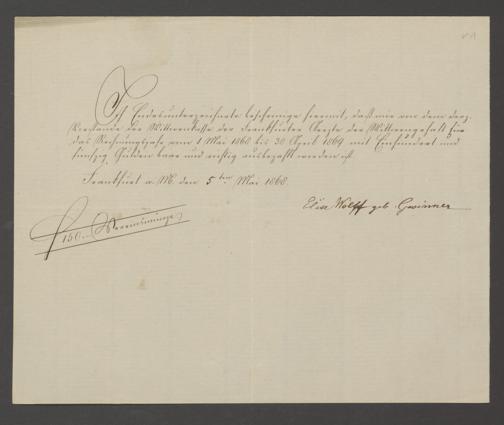 Ich Endesunterzeichnete bescheinige hiermit, daß mir von dem derz.
Vorstande der Wittwenkasse der Frankfurter Aerzte der Wittwengehalt für
das Rechnungsjahr vom 1 Mai 1868 bis 30 April 1869 mit Einhundert und
fünfzig Gulden baar und richtig ausbezahlt worden ist.
Frankfurt a. M. den 5ten Mai 1868.
Elise Wolff geb. Gwinner
150.